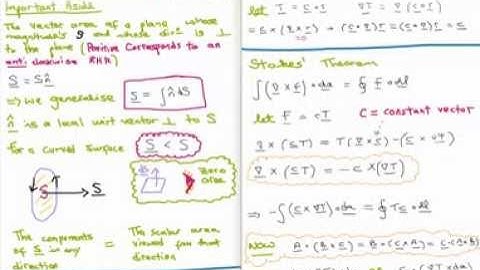 Important Aside
The vector area of a plane whose
magnitude's S and whose dirn is ⊥
to the plane (Positive Corresponds to an
anti clockwise RHR)
S = S n̂
⇒ we generalise S = ∫ n̂ dS
n̂ is a local unit vector ⊥ to S
for a curved surface S < S
S S
Zero
area
The components
of S in any
direction
=
The scalar area
viewed from that
direction
let
Stokes' Theorem
∫ (∇ × F) · da = ∮ F · dl
let F = cT C = constant vector
∇ × (cT) = T(∇ × c) - (c × ∇T)
∇ × (cT) = -c × (∇T)
⇒ -∫ (c × ∇T) · da = ∮ Tc · dl
Now A · (B × C) = B · (C × A) = C · (A × B)